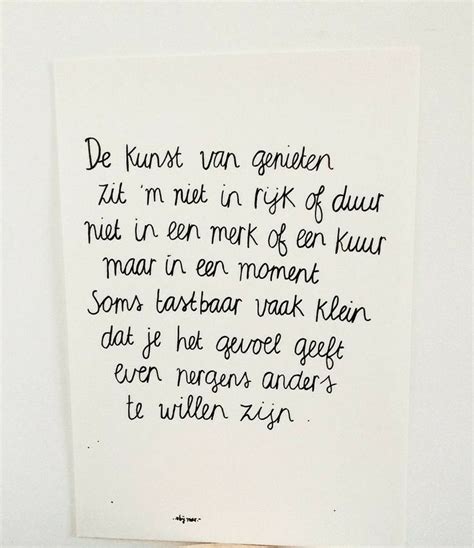 De kunst van genieten
zit 'm niet in rijk of duur
niet in een merk of een kuur
maar in een moment
Soms tastbaar vaak klein
dat je het gevoel geeft
even nergens anders
te willen zijn.